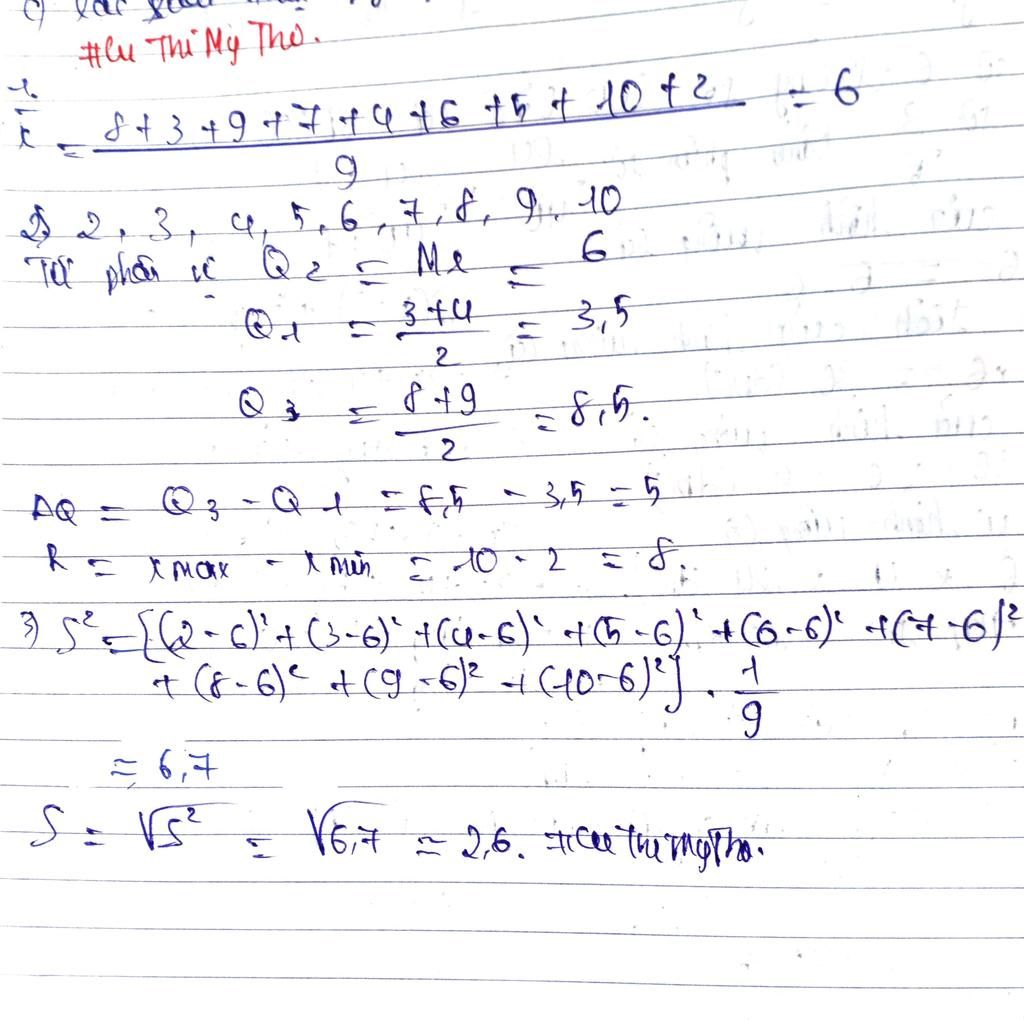 c)
#Cu Thi My Tho.
1.
x̄ = (8+3+9+7+4+6+5+10+2)/9 = 6
2) 2, 3, 4, 5, 6, 7, 8, 9, 10
Tứ phân vị Q2 = Me = 6
Q1 = (3+4)/2 = 3,5
Q3 = (8+9)/2 = 8,5.
ΔQ = Q3 - Q1 = 8,5 - 3,5 = 5
R = xmax - xmin = 10 - 2 = 8.
3) S² = [(2-6)² + (3-6)² + (4-6)² + (5-6)² + (6-6)² + (7-6)²
+ (8-6)² + (9-6)² + (10-6)²] . 1/9
≈ 6,7
S = √S² = √6,7 ≈ 2,6. #Cu Thi My Tho.